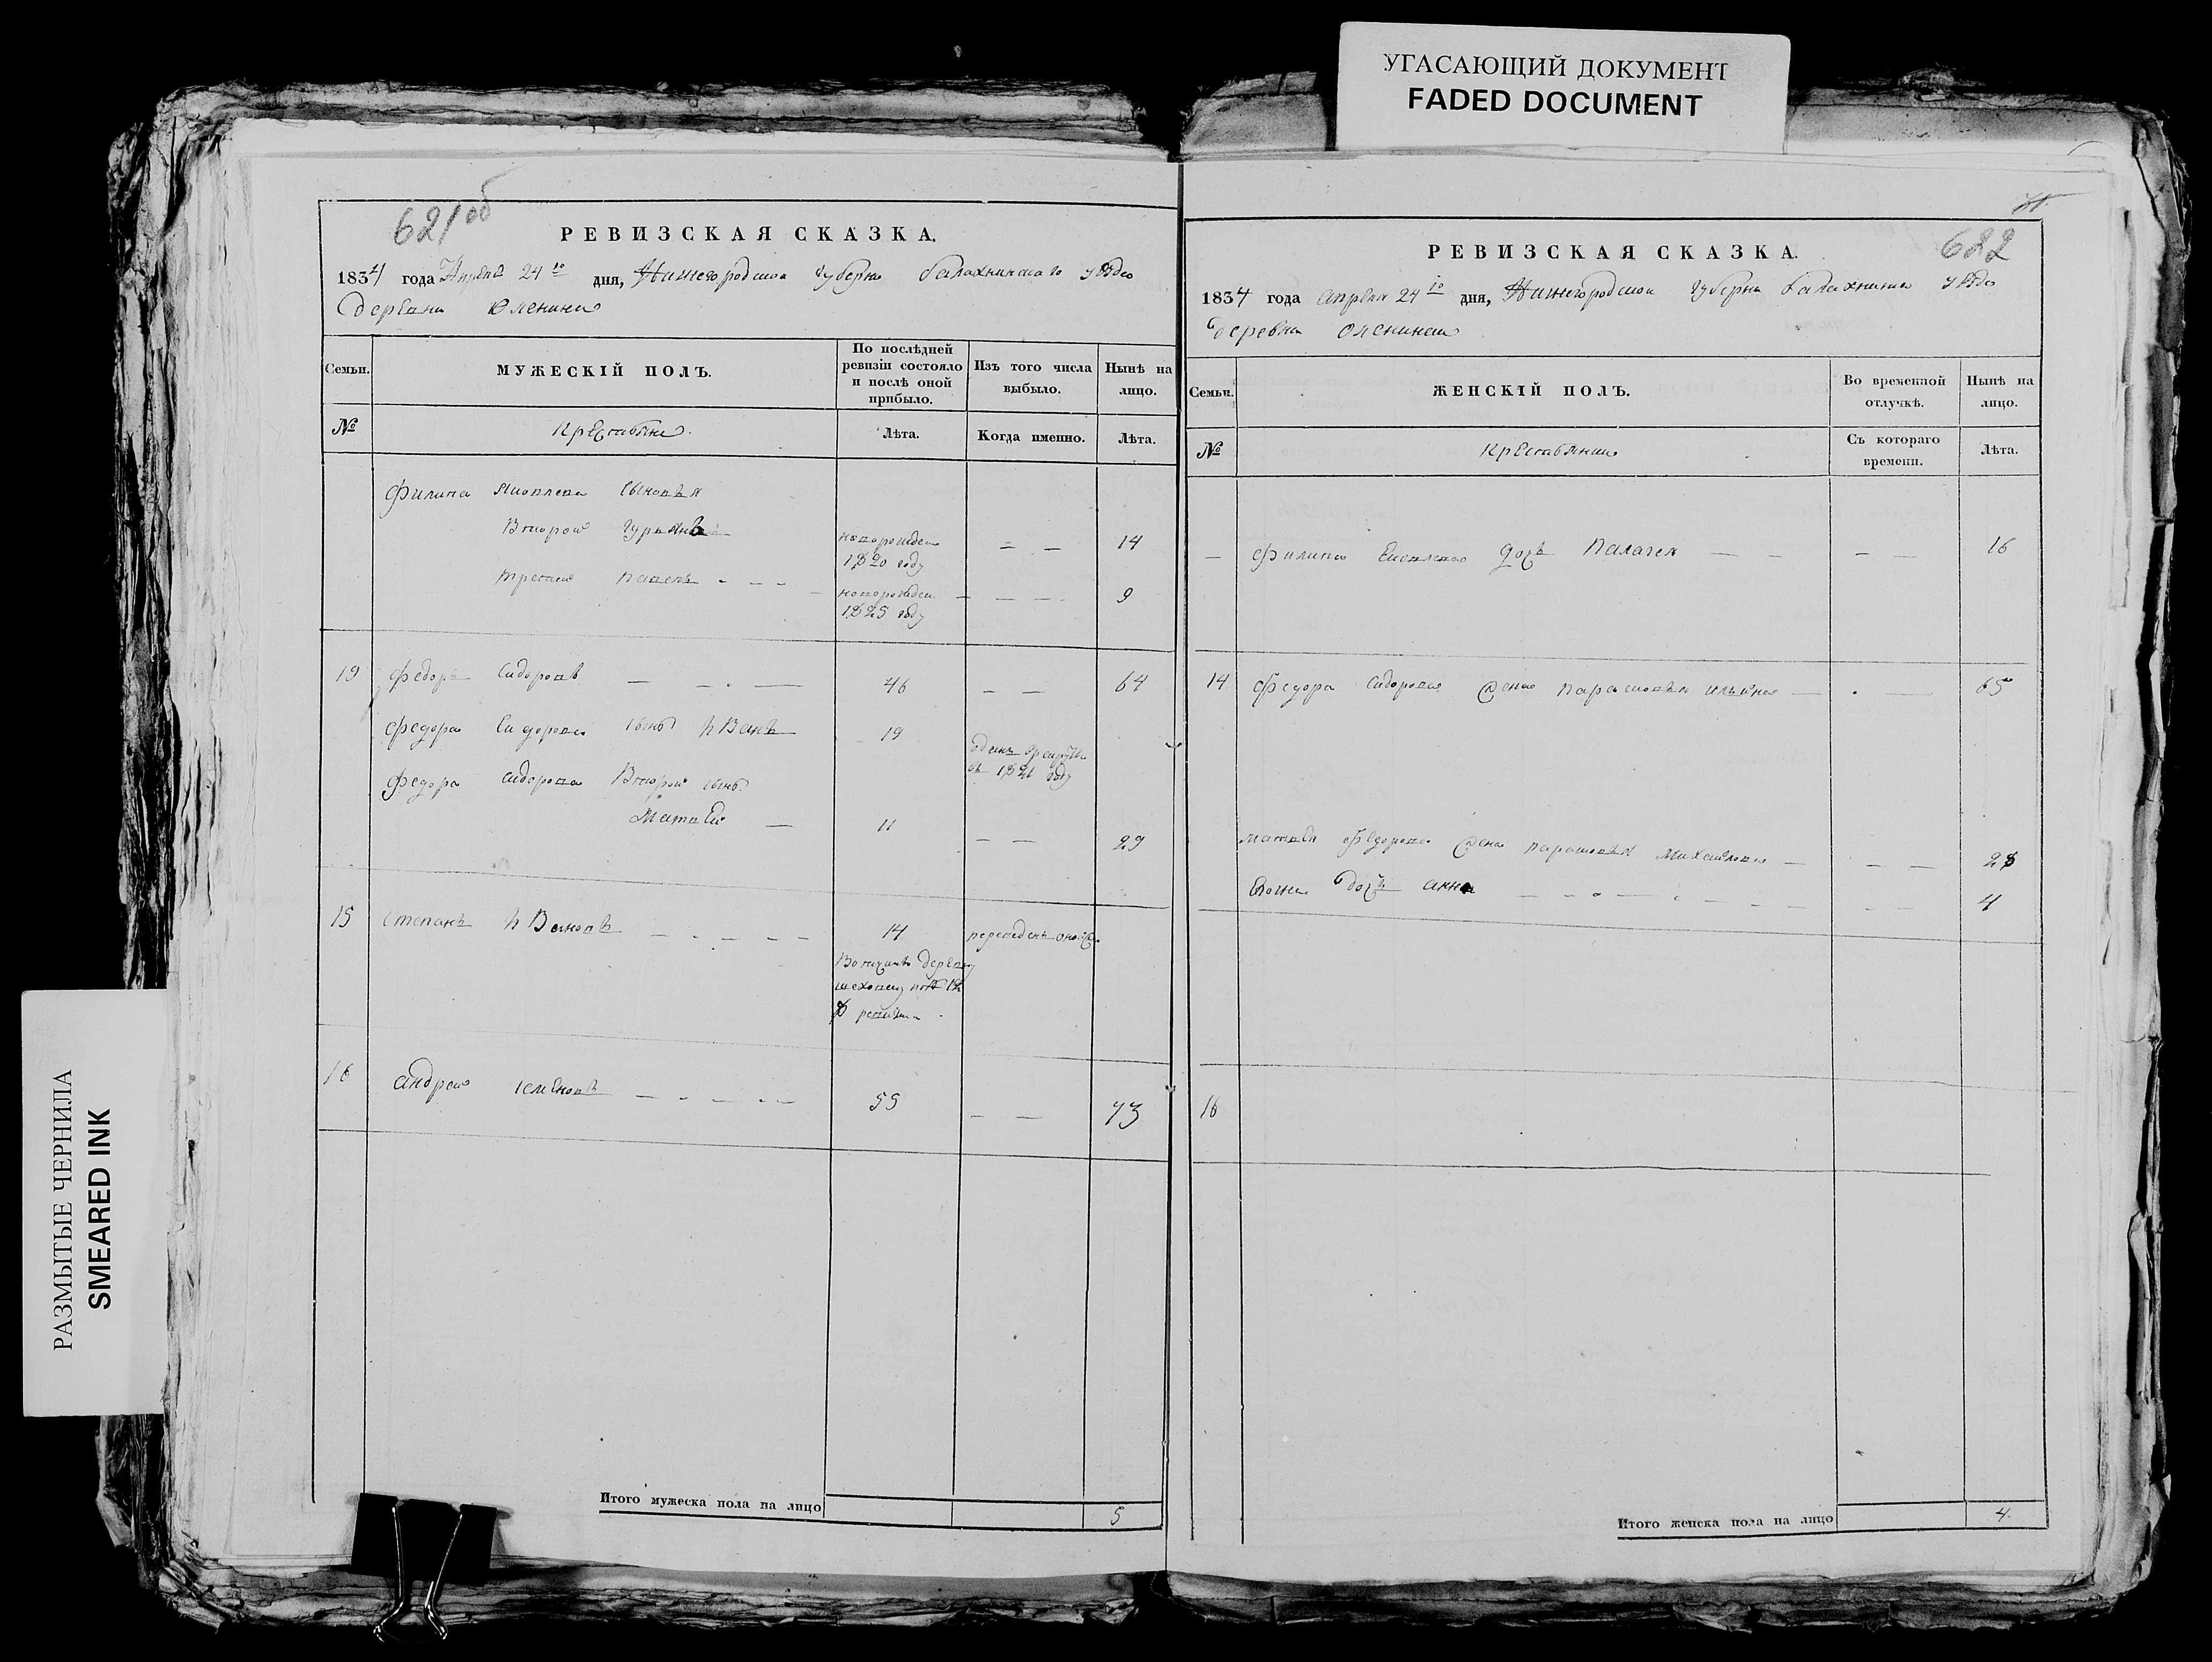 УГАСАЮЩИЙ ДОКУМЕНТ
FADED DOCUMENT
РАЗМЫТЫЕ ЧЕРНИЛА
SMEARED INK
621об
РЕВИЗСКАЯ СКАЗКА.
1834 года Апреля 24го дня, Нижегородской губерни балахнинскаго уѣзда
деревни
Семьи.
МУЖЕСКІЙ ПОЛЪ.
По послѣдней ревизіи состояло и послѣ оной прибыло.
Изъ того числа выбыло.
Нынѣ на лицо.
№
Крестьяне.
Лѣта.
Когда именно.
Лѣта.
Филипа сыновья
Второй Гурьянъ
новорожден 1820 году — — 14
третей —
новорожден 1825 году — — 9
19 Федоръ Сидоровъ — — — 46 — — 64
Федора Сидорова сынъ Иванъ 19
въ 1821 году
Федора сидорова Второй сынъ
Матвей — 11 — — 29
15 Степанъ Ивановъ — — — — 14
деревню
ревизии
16 андрей семеновъ — — — — 55 — — 73
Итого мужеска пола на лицо 5
622
РЕВИЗСКАЯ СКАЗКА.
1834 года апреля 24го дня, Нижегородской Губерни балахнинска уѣзда
деревни
Семьи.
ЖЕНСКІЙ ПОЛЪ.
Во временной отлучкѣ.
Нынѣ на лицо.
№
Крестьянки
Съ котораго времени.
Лѣта.
— Филипа дочь Палагея — — — — 16
14 Федора Сидорова жена парасковья ильина — — 65
матвея Федорова жена парасковья Михайлова — — — 28
дочь анна — — — — 4
16
Итого женска пола на лицо 4.